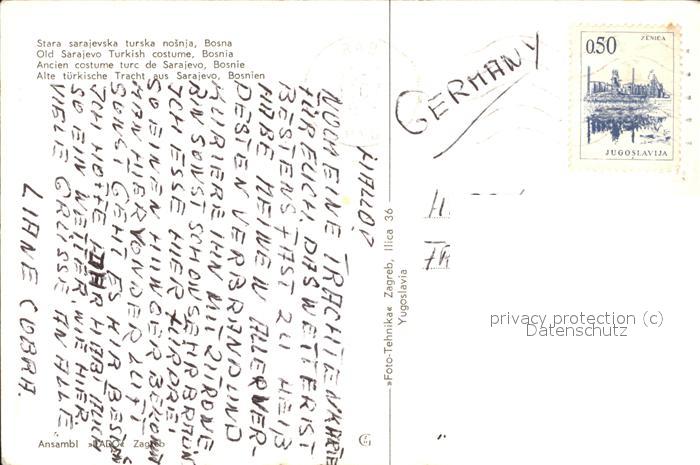 Stara sarajevska turska nošnja, Bosna
Old Sarajevo Turkish costume, Bosnia
Ancien costume turc de Sarajevo, Bosnie
Alte türkische Tracht aus Sarajevo, Bosnien
HALLO!
NOCH EINE TRACHTENKARTE
FÜR EUCH. DAS WETTER IST
BESTENS, FAST ZU HEIß
HABE MEINEN ALLERWER-
DESTEN VERBRANDUND
KURIERE IHN MIT ZITRONE
BIN SONST SCHON SEHR BRAUN
ICH ESSE HIER FÜR DREI
SO EINEN HUNGER BEKOMMT
MAN HIER VON DER LUFT
SONST GEHT ES MIR BESTENS
ICH HOFFE IHR HABT AUCH
SO EIN WETTER, WIE HIER.
VIELE GRÜSSE AN ALLE
LIANE COBRA.
Ansambl »LADO« Zagreb
»Foto-Tehnika« Zagreb, Ilica 36
Yugoslavia
GERMANY
0,50
ZENICA
JUGOSLAVIJA
H.
privacy protection (c)
Datenschutz